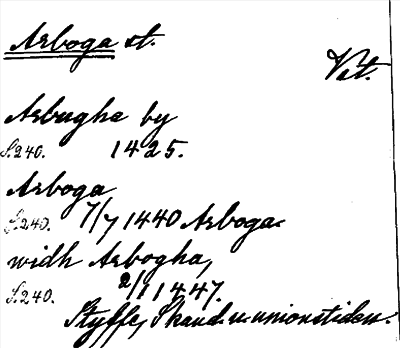 Arboga st.
Vst.
Arbugha by
S.240. 1425.
Arboga
S.240. 7/7 1440 Arboga
widh Arbogha,
S.240. 2/1 1447.
Styffe, Skand. u. unionstiden.